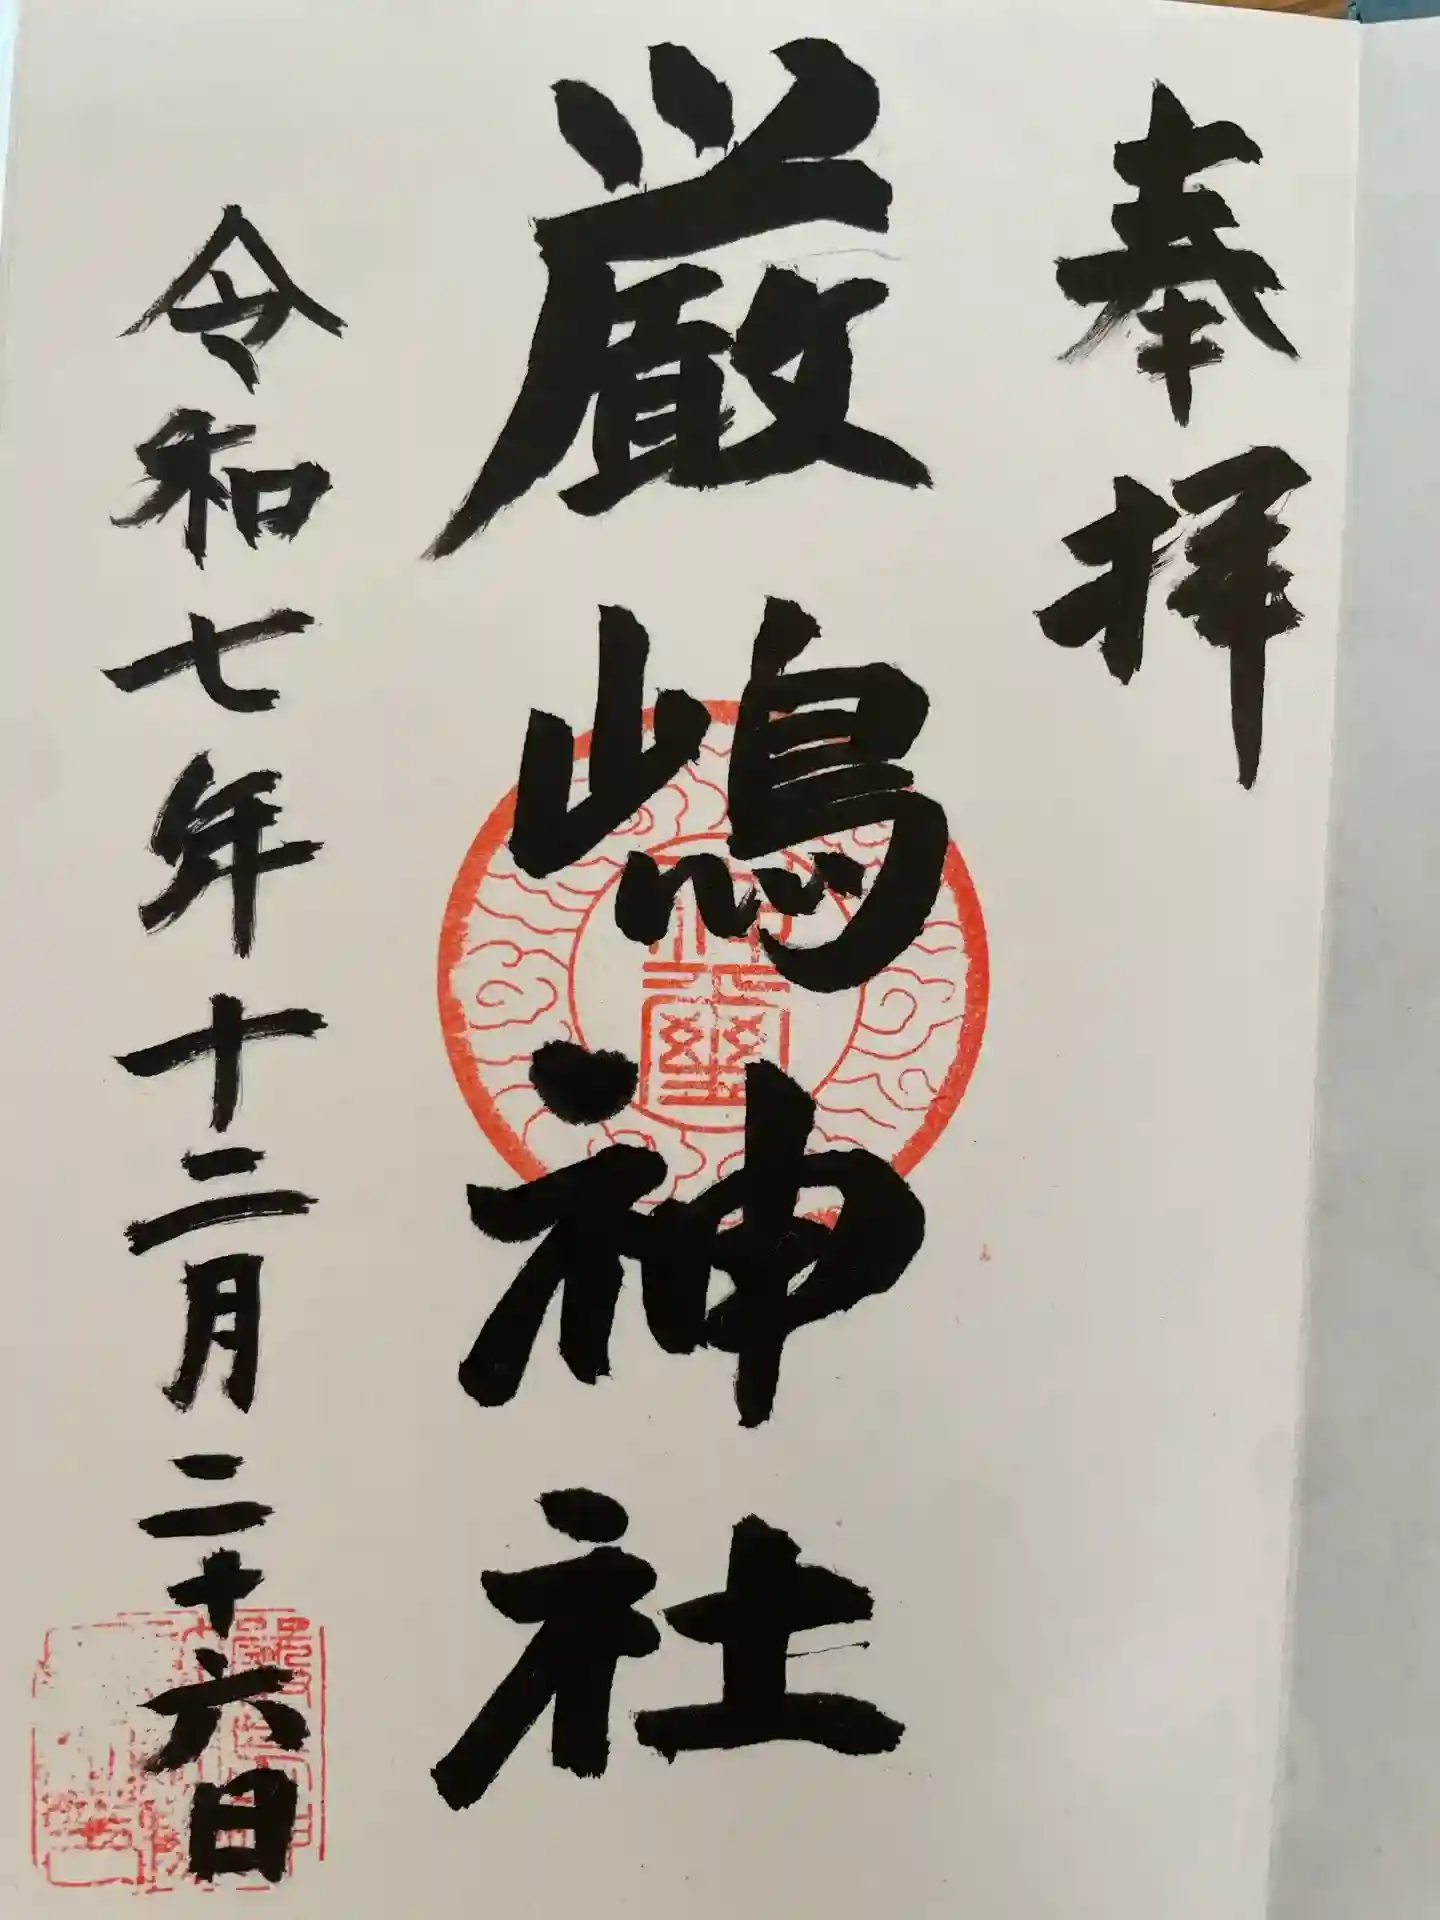 奉拝
厳嶋神社
令和七年十二月二十六日